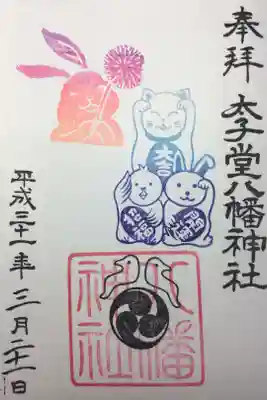 奉拝
太子堂八幡神社
大吉
八幡
神社
平成三十一年三月二十一日